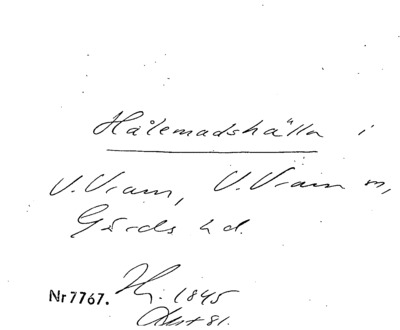 Hålemadshälla i
V. Vram, V. Vram sn,
Gärds hd.
Nr 7767. Hj. 1845
Akt 81.